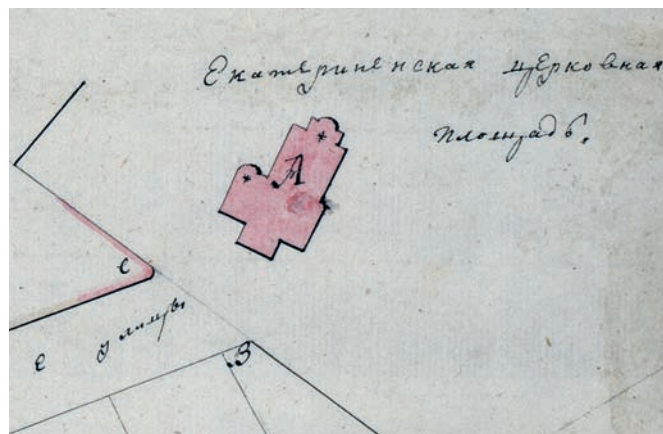 Екатерененская церковная
площадь.
А
С
Е улицы
В